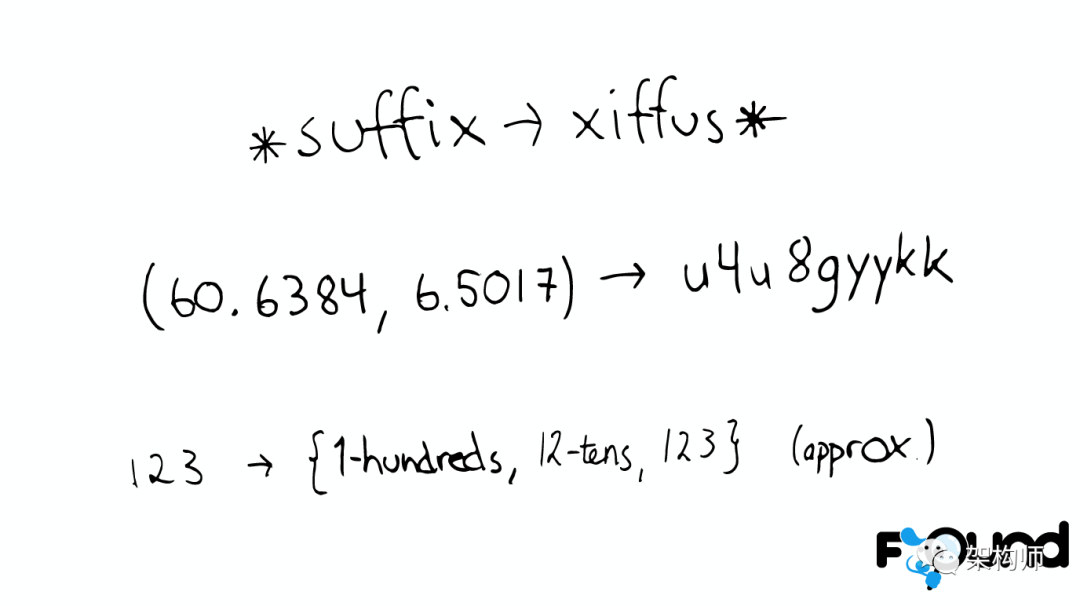 *suffix → xiffus*
(60.6384, 6.5017) → u4u8gyykk
123 → {1-hundreds, 12-tens, 123} (approx.)
Found
架构师